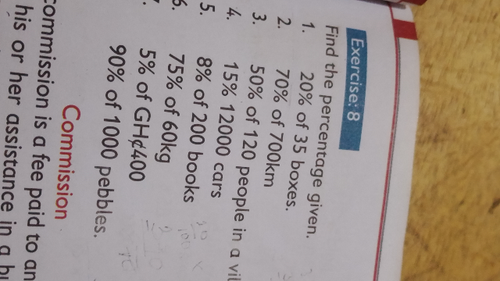 Exercise: 8
Find the percentage given.
1. 20% of 35 boxes.
2. 70% of 700km
3. 50% of 120 people in a vil
4. 15% 12000 cars
5. 8% of 200 books
6. 75% of 60kg
5% of GH₵400
90% of 1000 pebbles.
Commission
ommission is a fee paid to an
his or her assistance in a bu